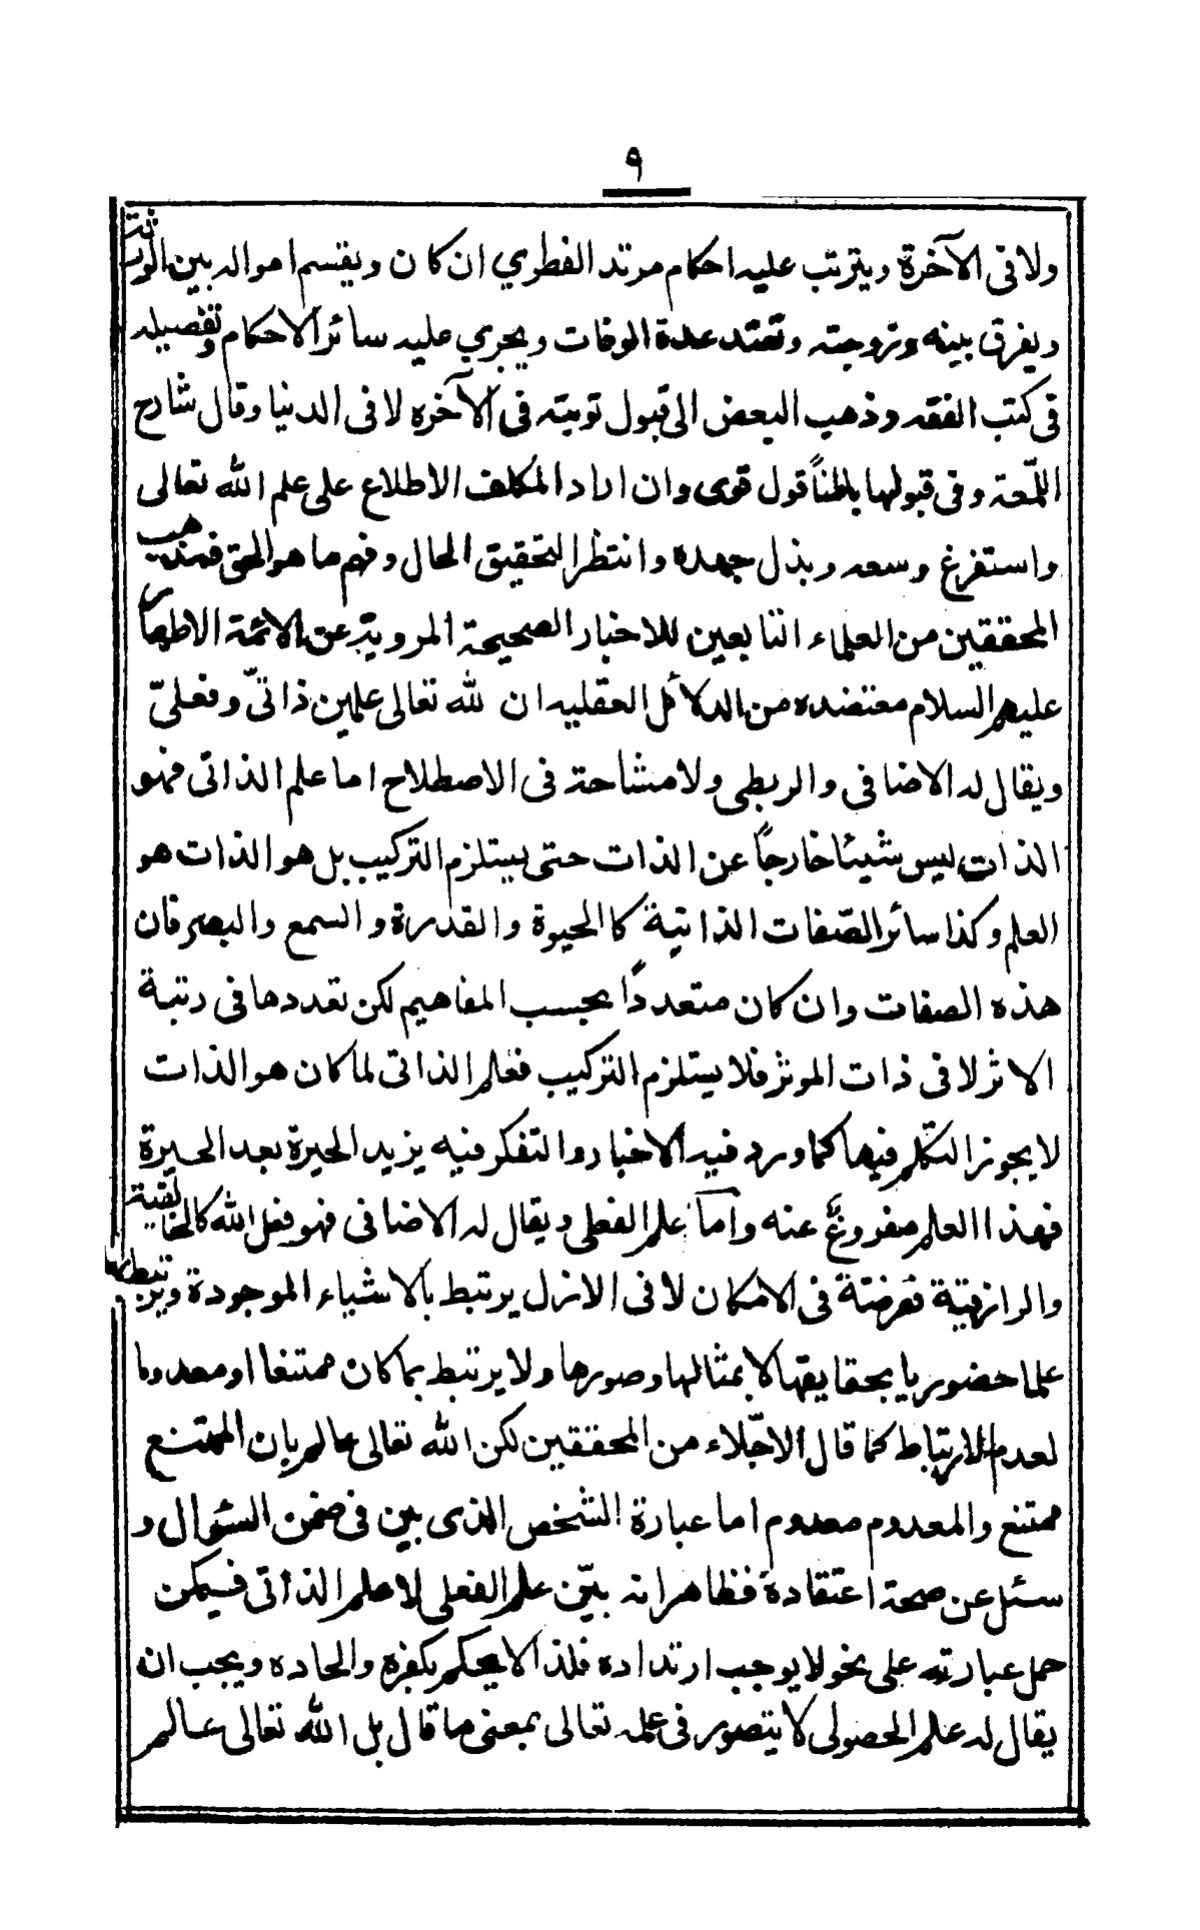 ٩
ولا فى الآخرة ويترتب عليه احكام مرتد الفطري ان كان ويقسم امواله بين الورثة
ويفرق بينه وزوجته وتعتد عدة الوفات ويجري عليه سائر الاحكام وتفصيله
فى كتب الفقه وذهب البعض الى قبول توبته فى الآخره لا فى الدنيا وقال شارح
اللمّعة وفى قبولها باطناً قول قوى وان اراد المكلف الاطلاع على علم الله تعالى
واستفرغ وسعه وبذل جهده وانتظر التحقيق الحال وفهم ما هو الحق فمذهب
المحققين من العلماء التابعين للاخبار الصحيحة المروية عن الائمة الاطهار
عليهم السلام معتضده من الدلائل العقليه ان لله تعالى علمين ذاتىّ وفعلىّ
ويقال له الاضافى والربطى ولا مشاحة فى الاصطلاح اما علم الذاتى فهو
الذات ليس شيئا خارجاً عن الذات حتى يستلزم التركيب بل هو الذات هو
العلم وكذا سائر الصّفات الذاتية كالحيوة والقدرة والسمع والبصر فان
هذه الصفات وان كان متعدداً بحسب المفاهيم لكن تعددها فى رتبة
الاثر لا فى ذات الموثر فلا يستلزم التركيب فعلم الذاتى لما كان هو الذات
لا يجوز التكلم فيها كما ورد فيه الاخبار والتفكر فيه يزيد الحيرة بعد الحيرة
فهذا العلم مفروغ عنه وأما علم الفعلى ويقال له الاضافى فهو فعل الله كالخالقية
والرازقية فعرضة فى الامكان لا فى الازل يرتبط بالاشياء الموجودة ويرتبط بها
علما حضوريا بحقايقها لا بمثالها وصورها ولا يرتبط بما كان ممتنعا او معدوما
لعدم الارتباط كما قال الاجّلاء من المحققين لكن الله تعالى عالم بان الممتنع
ممتنع والمعدوم معدوم اما عبارة الشخص الذى بين فى ضمن السئوال و
سئل عن صحة اعتقادة فظاهرا نه بيّن علم الفعلى لا علم الذاتى فيمكن
حمل عبارته على نحو لا يوجب ارتداده فلذا لا يحكم بكفره والحاده ويجب ان
يقال له علم الحصولى لا يتصور فى علمه تعالى بمعنى ما قال بل الله تعالى عالم